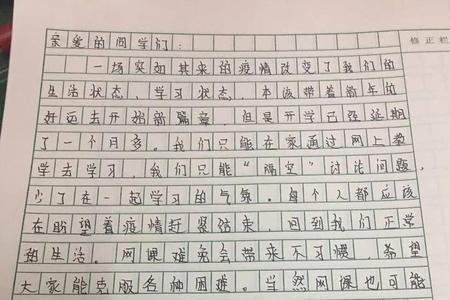 亲爱的同学们：
修正栏
一场突如其来的疫情改变了我们的
生活状态、学习状态，本该带着新年的
好运去开始新篇章，但是开学已经延期
了一个月多。我们只能在家通过网上教
学去学习，我们只能“隔空”讨论问题，
少了在一起学习的气氛。每个人都应该
在盼望着疫情赶紧结束，回到我们正常
的生活。网课难免会带来不习惯，希望
大家能克服各种困难。当然网课也可能